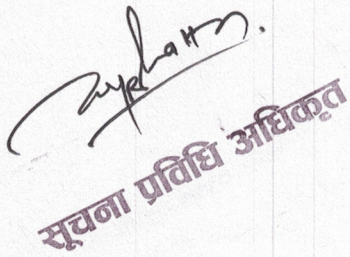 सूचना प्रविधि अधिकृत